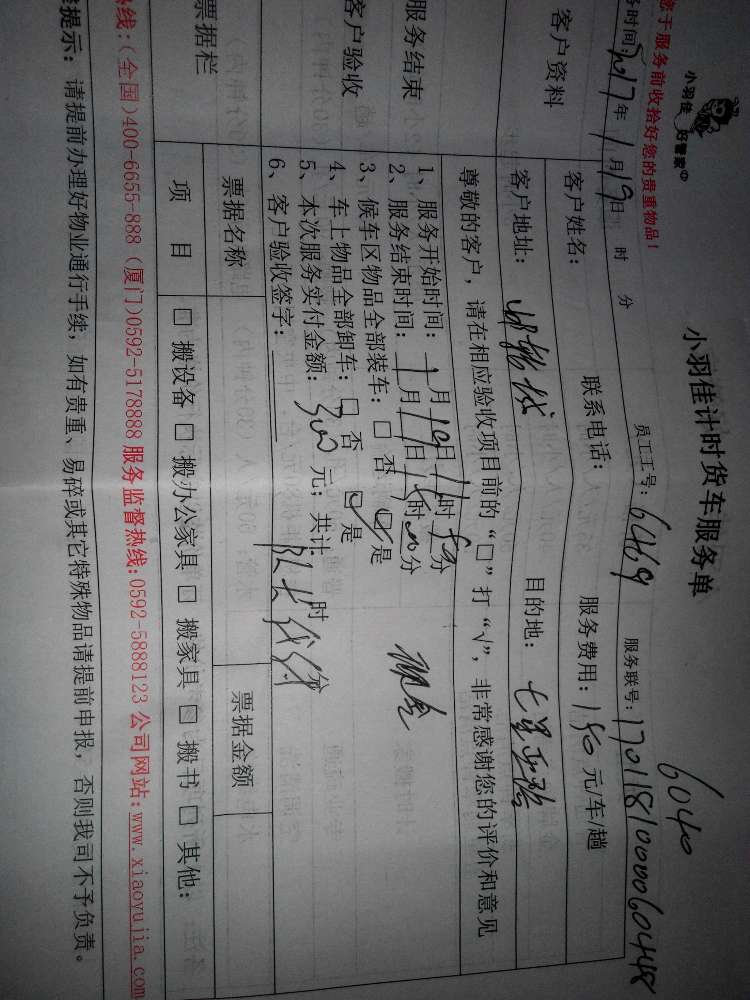 小羽佳 好管家
小羽佳计时货车服务单
6040
您于服务前收拾好您的贵重物品！
务时间：2017年1月19日 时 分 员工工号：6469 服务联号：170118100006048
客户资料
客户姓名： 联系电话： 服务费用：150元/车/趟
客户地址： 目的地：
尊敬的客户，请在相应验收项目前的“□”打“√”，非常感谢您的评价和意见
服务结束
客户验收
1、服务开始时间：1月19日11时50分
2、服务结束时间：1月19日15时00分
3、候车区物品全部装车：□ 否 ☑ 是
4、车上物品全部卸车：□ 否 ☑ 是
5、本次服务实付金额：300元；共计 时 分
6、客户验收签字：
票据栏
票据名称 票据金额
项目 □ 搬设备 □ 搬办公家具 □ 搬家具 □ 搬书 □ 其他：
热线：(全国)400-6655-888 (厦门)0592-5178888 服务监督热线：0592-5888123 公司网站：www.xiaoyujia.com
提示：请提前办理好物业通行手续，如有贵重、易碎或其它特殊物品请提前申报，否则我司不予负责。